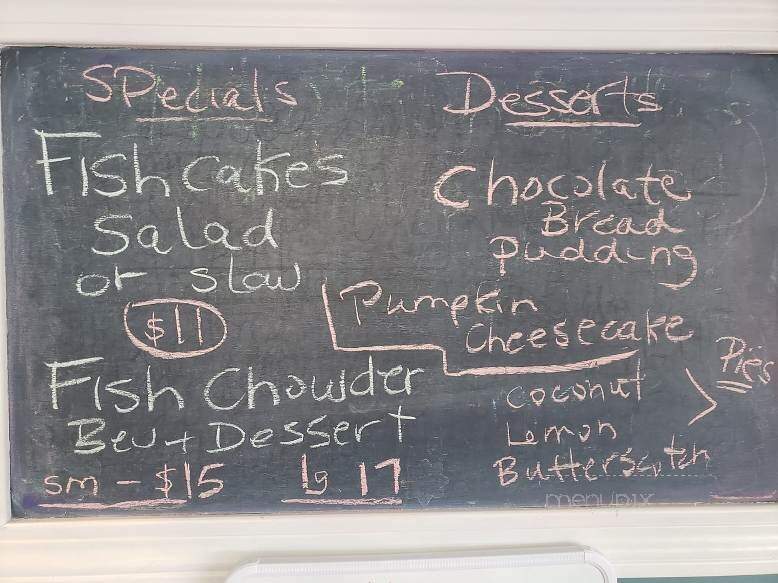 Specials
Fish Cakes
Salad
or slaw
$11
Fish Chowder
Bev + Dessert
sm - $15 lg. 17
Desserts
Chocolate
Bread
Pudding
Pumpkin
Cheesecake
Coconut
Lemon
Butterscotch
Pies
menupix